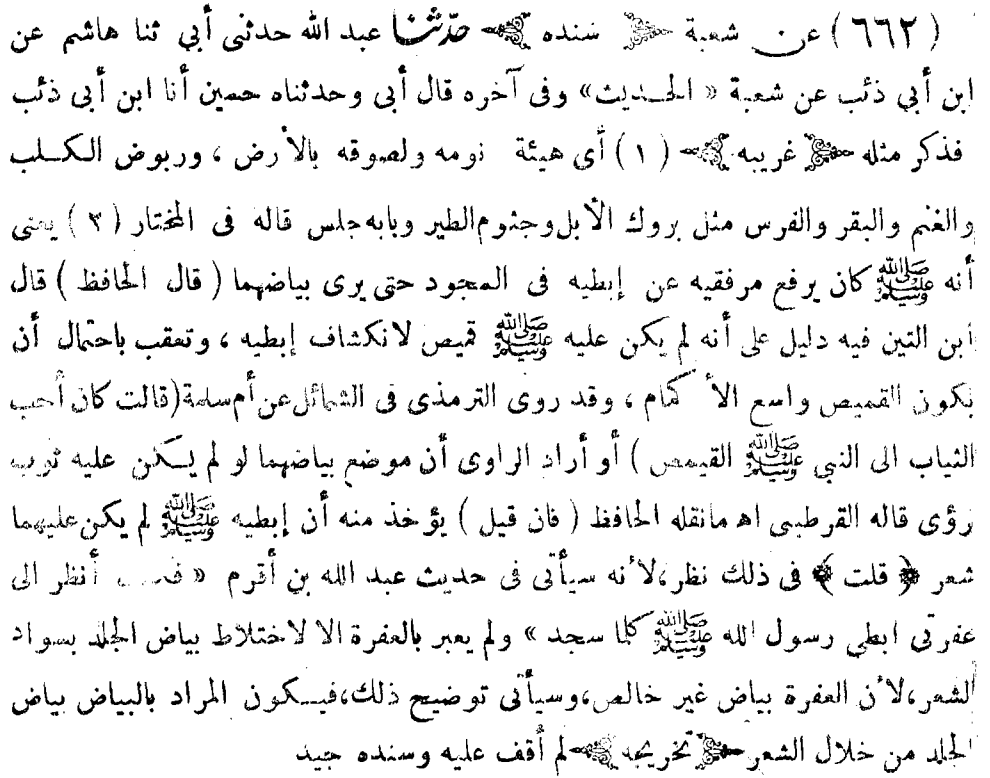 (٦٦٢) عن شعبة ﴿ سنده ﴾ حدثنا عبد الله حدثنى أبي ثنا هاشم عن
ابن أبي ذئب عن شعبة « الحديث» وفى آخره قال أبى وحدثناه حسين أنا ابن أبى ذئب
فذكر مثله ﴿ غريبه ﴾ (١) أى هيئة نومه ولصوقه بالأرض ، وربوض الكلب
والغنم والبقر والفرس مثل بروك الأبل وجثوم الطير وبابه جلس قاله فى المختار (٣) يعنى
أنه ﷺ كان يرفع مرفقيه عن إبطيه فى السجود حتى يرى بياضهما (قال الحافظ) قال
ابن التين فيه دليل على أنه لم يكن عليه ﷺ قميص لانكشاف إبطيه ، وتعقب باحتمال أن
يكون القميص واسع الأكمام ، وقد روى الترمذى فى الشمائل عن أم سلمة (قالت كان أحب
الثياب الى النبي ﷺ القيمص) أو أراد الراوى أن موضع بياضهما لو لم يكن عليه ثوب
لرؤى قاله القرطبى اه مانقله الحافظ (فان قيل) يؤخذ منه أن إبطيه ﷺ لم يكن عليهما
شعر ﴿ قلت ﴾ فى ذلك نظر،لأنه سيأتى فى حديث عبد الله بن أقرم « أنظر الى
عفرتى ابطي رسول الله ﷺ كلما سجد » ولم يعبر بالعفرة الا لاختلاط بياض الجلد بسواد
الشعر،لأن العفرة بياض غير خالص،وسيأتى توضيح ذلك،فيكون المراد بالبياض بياض
الجلد من خلال الشعر ﴿ تخريجه ﴾ لم أقف عليه وسنده جيد